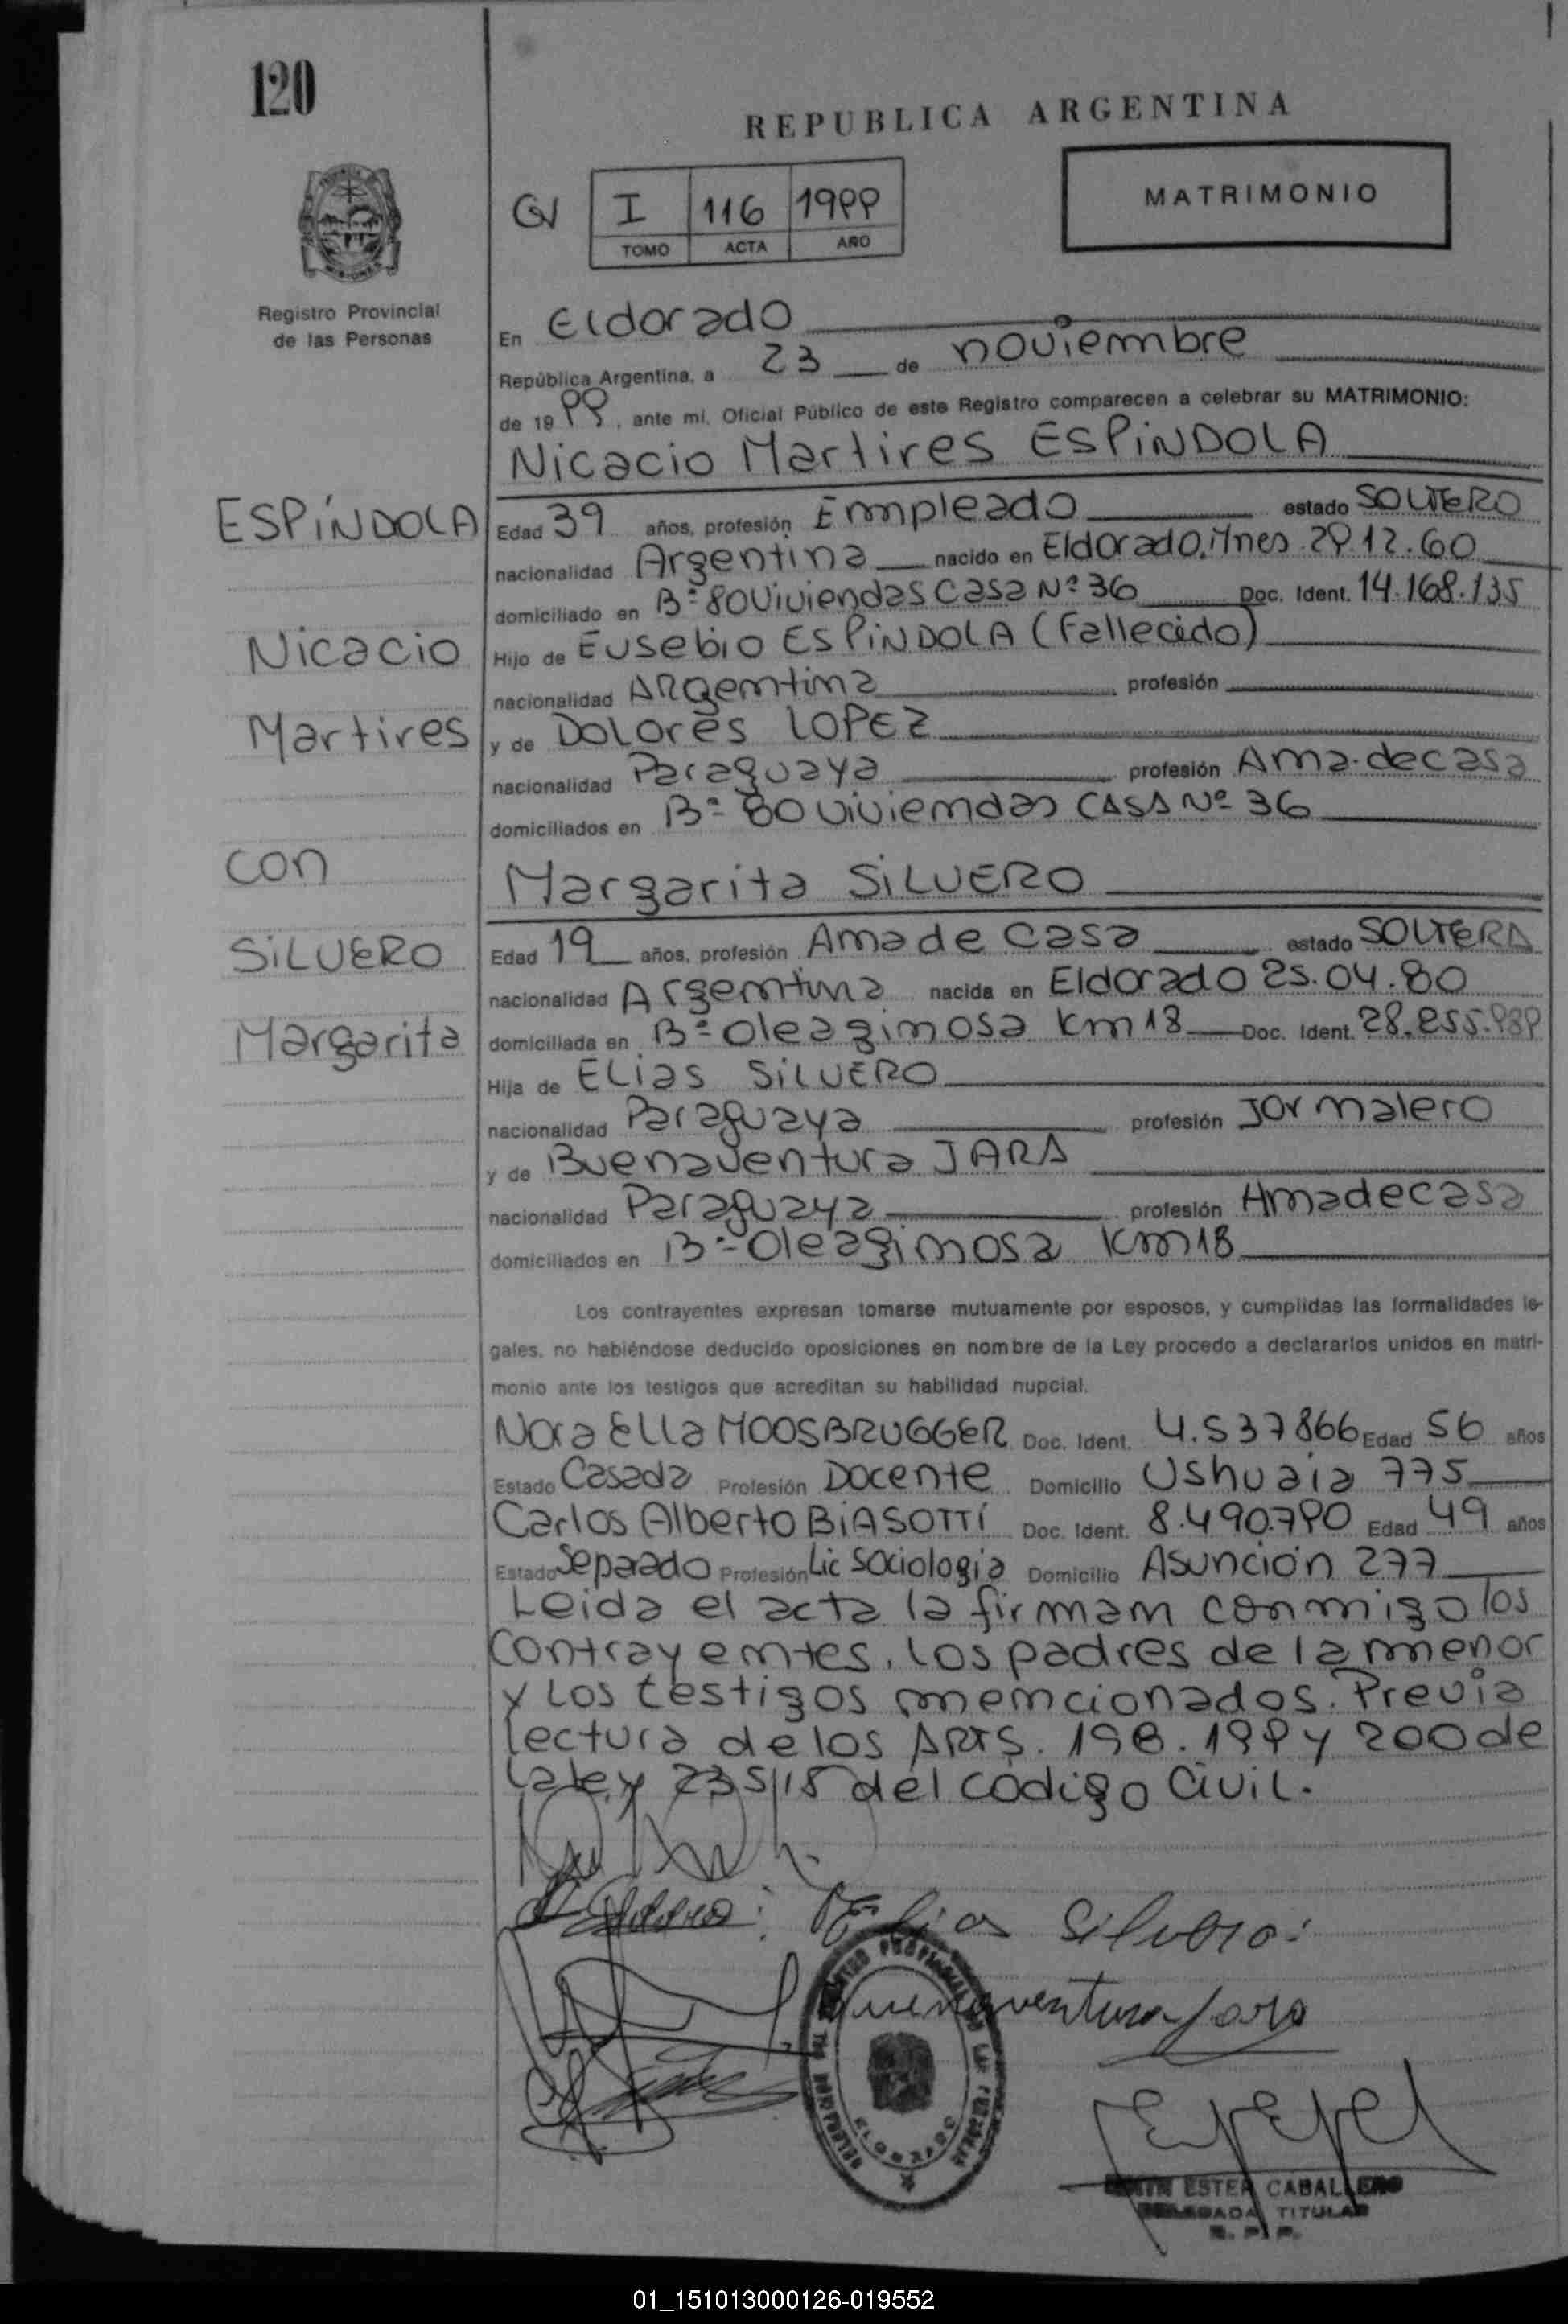 120
REPUBLICA ARGENTINA
I 116 1999
TOMO ACTA AÑO
MATRIMONIO
Registro Provincial
de las Personas
En Eldorado
República Argentina, a 23 de noviembre
de 19 99, ante mí, Oficial Público de este Registro comparecen a celebrar su MATRIMONIO:
Nicacio Martires ESPíNDOLA
ESPíNDOLA
Edad 39 años, profesión Empleado estado SOLTERO
nacionalidad Argentina nacido en Eldorado, Mnes 29.12.60
domiciliado en B° 80 Viviendas Casa Nº 36 Doc. Ident. 14.168.135
Nicacio
Hijo de Eusebio ESPiNDOLA (Fallecido)
nacionalidad ARgentina profesión
Martires
y de DOLores LOPEZ
nacionalidad Paraguaya profesión Ama de casa
domiciliados en B° 80 viviendas CASA Nº 36
con
Margarita SiLVERO
SiLVERO
Edad 19 años, profesión Ama de Casa estado SOLTERA
nacionalidad Argentina nacida en Eldorado 25.04.80
Margarita
domiciliada en B° Oleaginosa Km 18 Doc. Ident. 28.255.989
Hija de ELias SiLVERO
nacionalidad Paraguaya profesión Jornalero
y de Buenaventura JARA
nacionalidad Paraguaya profesión Ama de casa
domiciliados en B° Oleaginosa Km 18
Los contrayentes expresan tomarse mutuamente por esposos, y cumplidas las formalidades le-
gales, no habiéndose deducido oposiciones en nombre de la Ley procedo a declararlos unidos en matri-
monio ante los testigos que acreditan su habilidad nupcial.
Nora Ella MOOSBRUGGER Doc. Ident. 4.537866 Edad 56 años
Estado Casada Profesión Docente Domicilio Ushuaia 775
Carlos Alberto BiASOTTí Doc. Ident. 8.490.790 Edad 49 años
Estado Separado Profesión Lic Sociologia Domicilio Asunción 277
Leida el acta la firman conmigo los
contrayentes, los padres de la menor
y los testigos mencionados. Previa
lectura de los ARTS. 198. 199 y 200 de
la ley 23515 del código Civil.
Elias Silvero
Buenaventura Jara
ESTER CABALLERO
DELEGADA TITULAR
R. P. P.
01_151013000126-019552